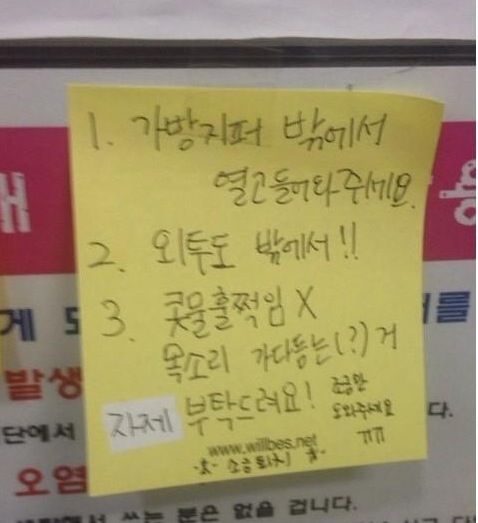 1. 가방지퍼 밖에서
열고들어와 주세요.
2. 외투도 밖에서!!
3. 콧물훌쩍임 X
목소리 가다듬는(?) 거
자제 부탁드려요! 조금만
도와주세요
ㄲㄲ
www.willbes.net
소음퇴치
게
를
발생
단에서
다.
오염
쓰는 분은 없을 겁니다.